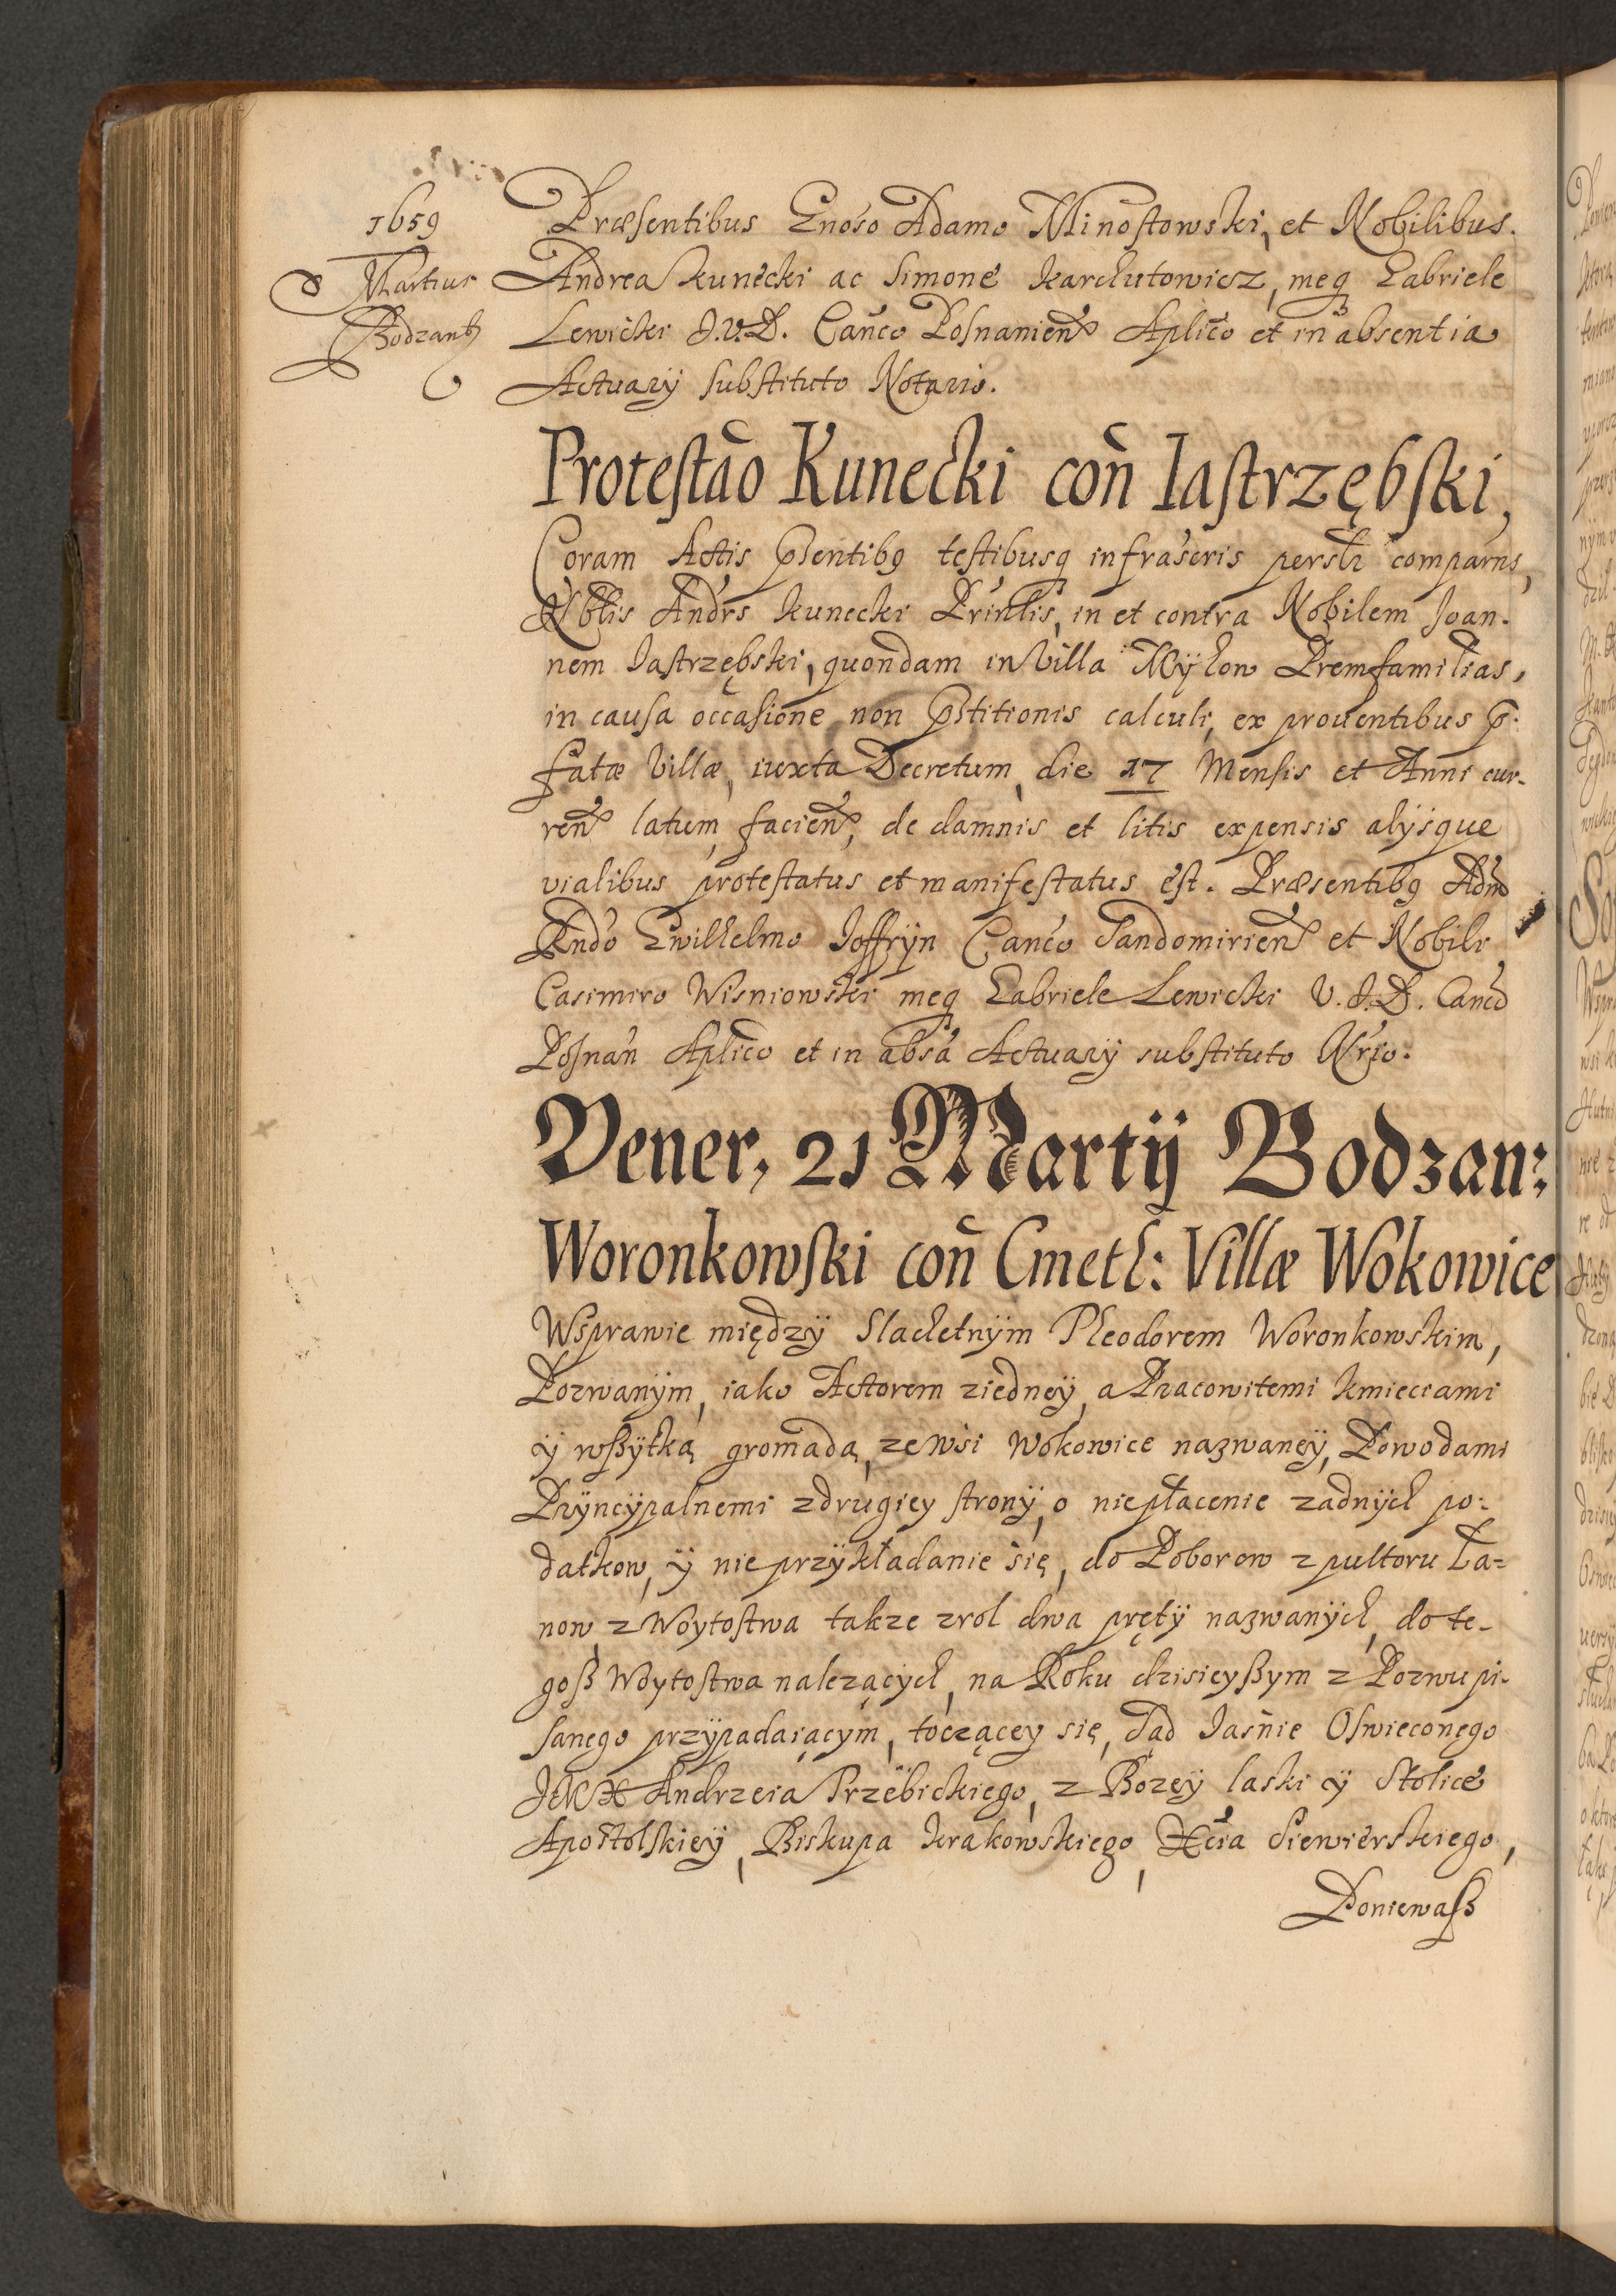 1659
Martius
Bodzant
Præsentibus Gnoso Adamo Minostowski, et Nobilibus.
Andrea Kunecki ac Simone Karchutowicz, meq Gabriele
Lewicki J.V.D. Canco Posnanien Aplico et in absentia
Actuarÿ substituto Notario.
Protestao Kunecki con Iastrzębski,
Coram Actis pntibq testibusq infrascris perslr comparns,
Nblis Andrs Kunecki Prinlis, in et contra Nobilem Joan-
nem Jastrzębski, quondam in Villa Mÿkow Premfamilias,
in causa occasione non pstitionis calculi, ex prouentibus p:
fatæ Villæ, iuxta Decretum, die 17 Mensis et Anni cur-
ren latum, facien, de damnis et litis expensis alÿsque
vialibus protestatus et manifestatus est. Præsentibq Adm
Rndo Gwilhelmo Joffrÿn Canco Sandomirien et Nobili
Casimiro Wisniowski meq Gabriele Lewicki V.J.D. Canco
Posnan Aplico et in absa Actuarÿ substituto Nrio.
Vener, 21 Martÿ Bodzan:
Woronkowski con Cmeth: Villæ Wokowice
Wsprawie międzÿ Slachetnÿm Theodorem Woronkowskim,
Pozwanÿm, iako Actorem ziedneÿ, a Pracowitemi kmieciami
ÿ wßÿtką gromadą, ze wsi Wokowice nazwaneÿ, Powodami
Prÿncÿpalnemi zdrugiey stronÿ, o niepłacenie zadnÿch po:
datkow, ÿ nie przÿkładanie się, do Poborow z pultoru Ła=
now z Woytostwa takze zrol dwa prętÿ nazwanÿch, do te-
goß Woytostwa nalezącÿch, na Roku dzisieyßym z Pozwu pi-
sanego przÿpadaiącym, toczącey się, Sąd Jasnie Oswieconego
JMX Andrzeia Trzebickiego, z Bozeÿ laski ÿ Stolice
Apostolskieÿ, Biskupa Krakowskiego, Xcia Siewierskiego,
Poniewaß